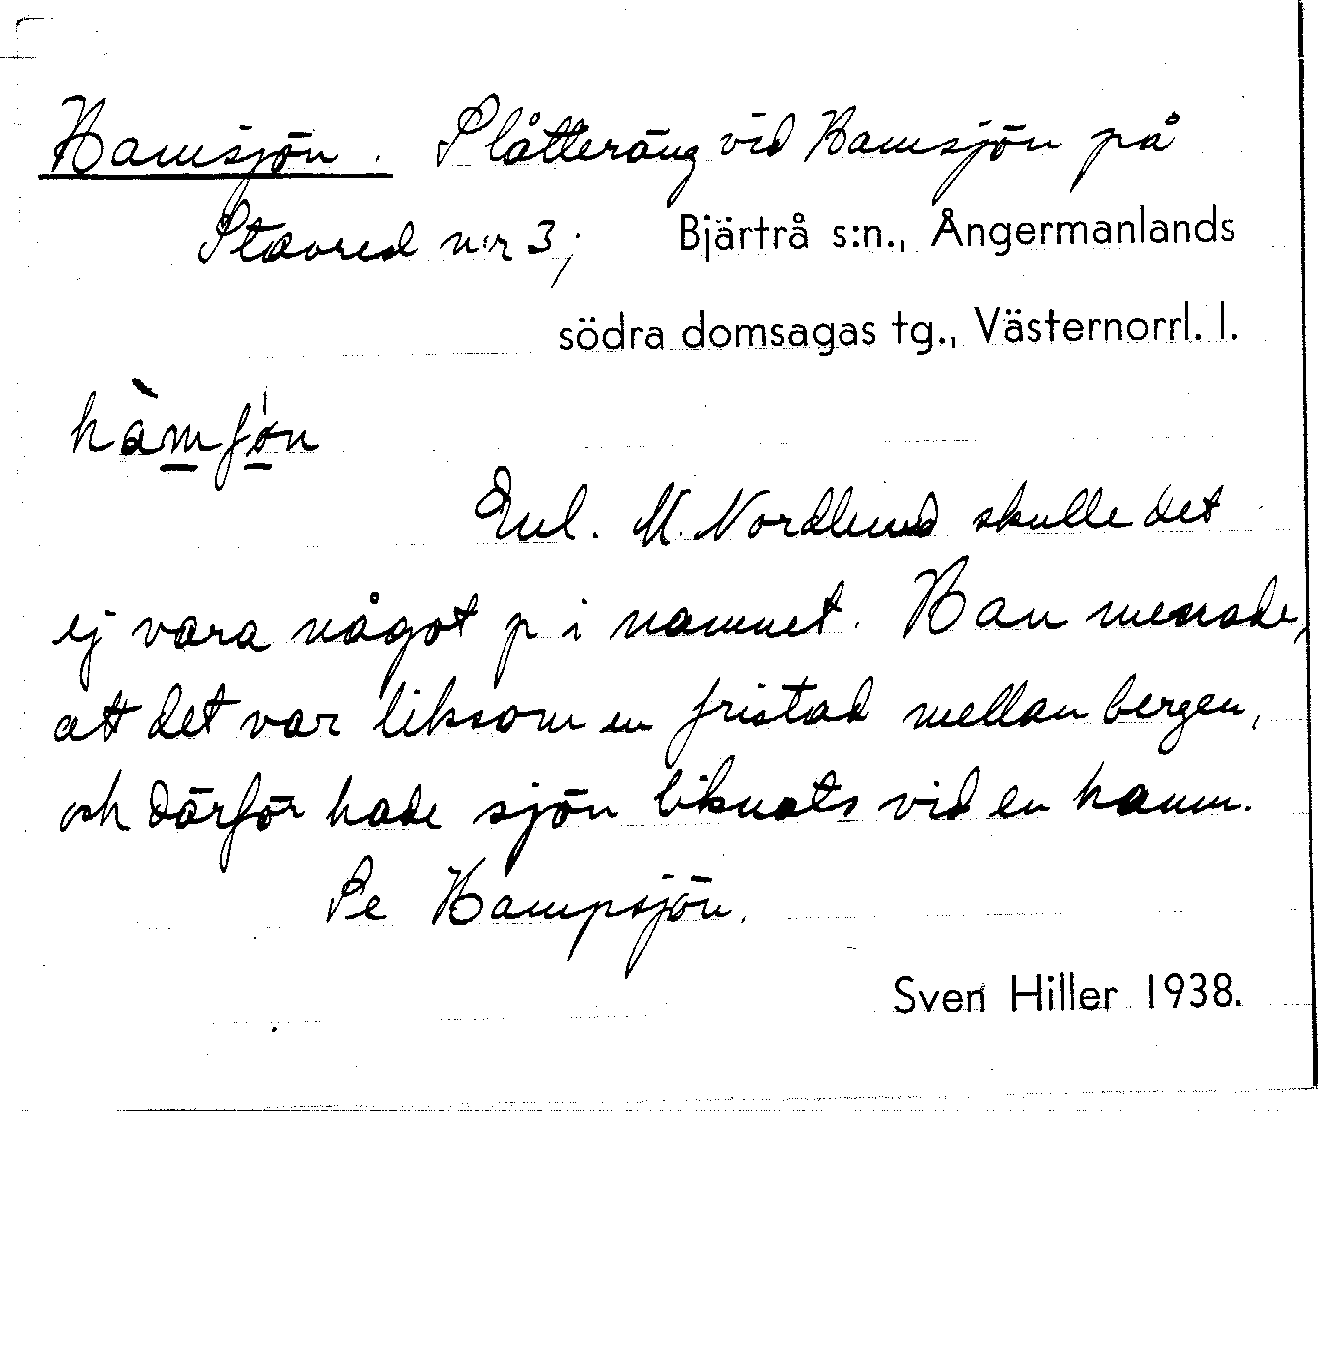 Hamsjön. Slåtteräng vid Hamsjön på
Stavred n:r 3; Bjärtrå s:n., Ångermanlands
södra domsagas tg., Västernorrl. l.
hàmʃø̀n
Enl. M. Nordlund skulle det
ej vara något p i namnet. Han menade,
att det var liksom en fristad mellan bergen,
och därför hade sjön liknats vid en hamn.
Se Hampsjön.
Sven Hiller 1938.